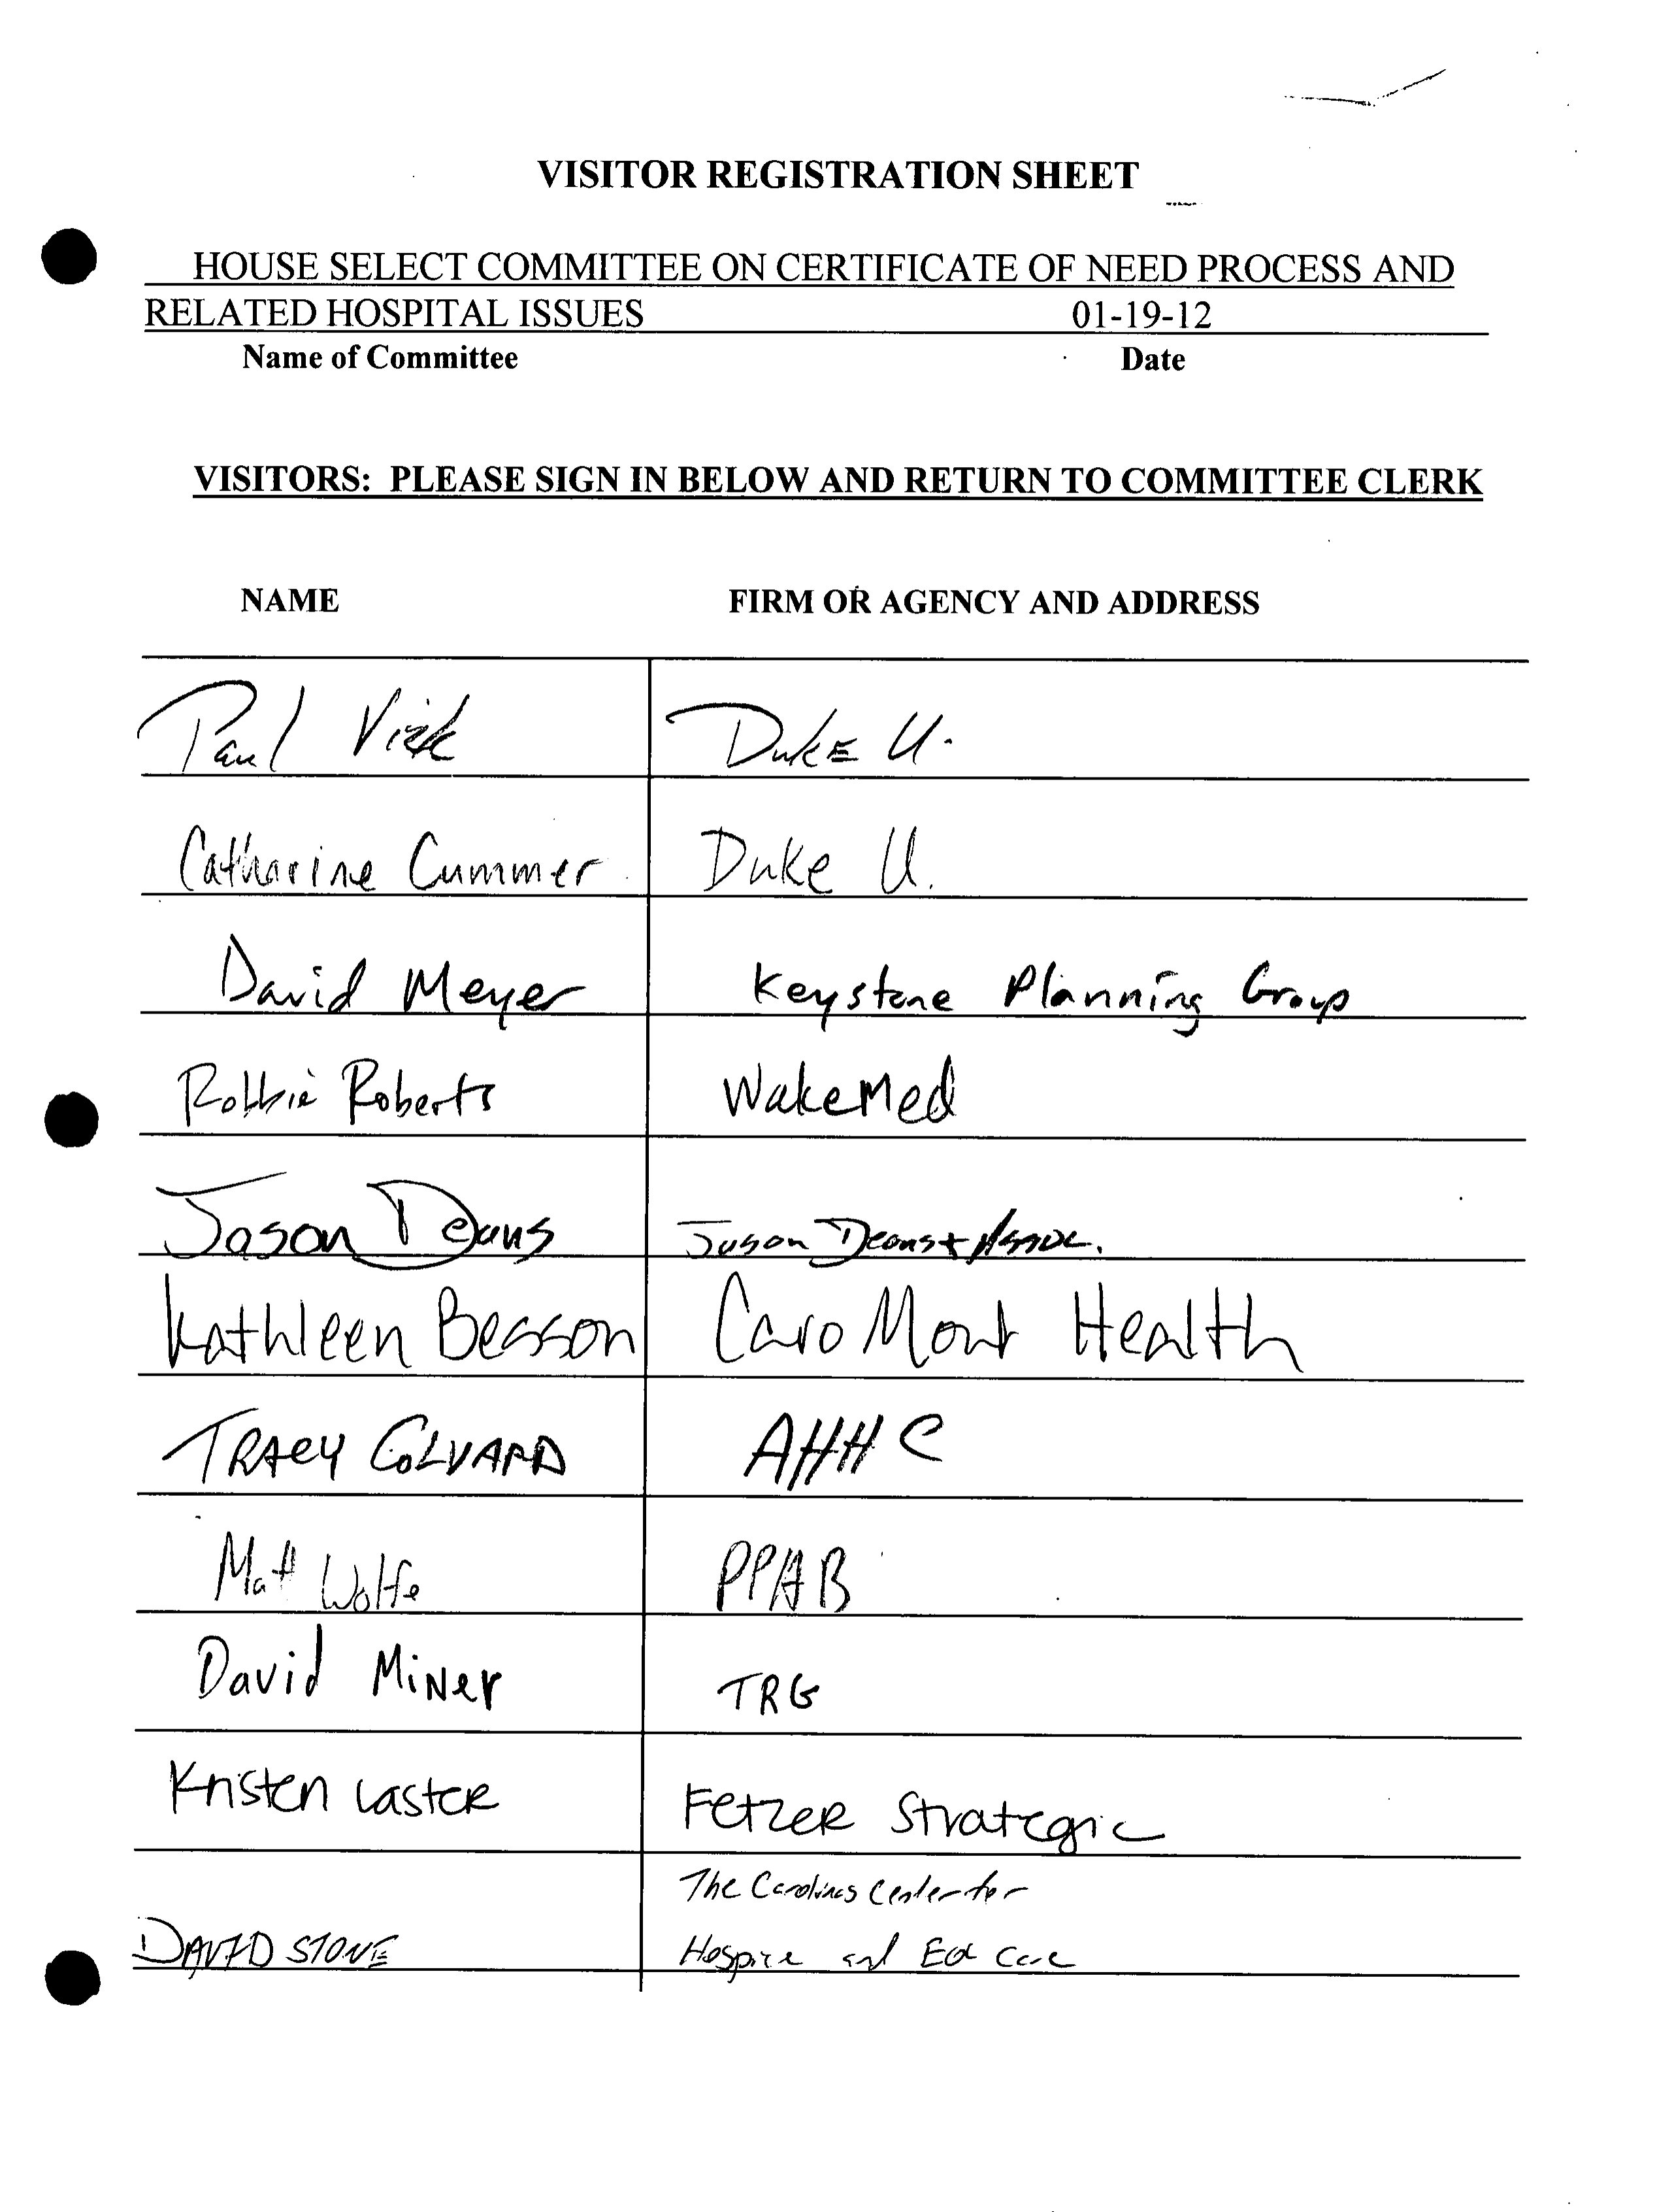 VISITOR REGISTRATION SHEET
HOUSE SELECT COMMITTEE ON CERTIFICATE OF NEED PROCESS AND
RELATED HOSPITAL ISSUES 01-19-12
Name of Committee Date
VISITORS: PLEASE SIGN IN BELOW AND RETURN TO COMMITTEE CLERK
NAME FIRM OR AGENCY AND ADDRESS
Paul Vick DukE U.
Catharine Cummer Duke U.
David Meyer Keystone Planning Group
Robbie Roberts WakeMed
Jason Deans Jason Deans + Assoc.
Kathleen Besson CaroMont Health
TRACY COLVARD AHHC
Matt Wolfe PPAB
David Miner TRG
Kristen Laster Fetzer Strategic
The Carolinas Center for
DAVID STONE Hospice and Eol Care